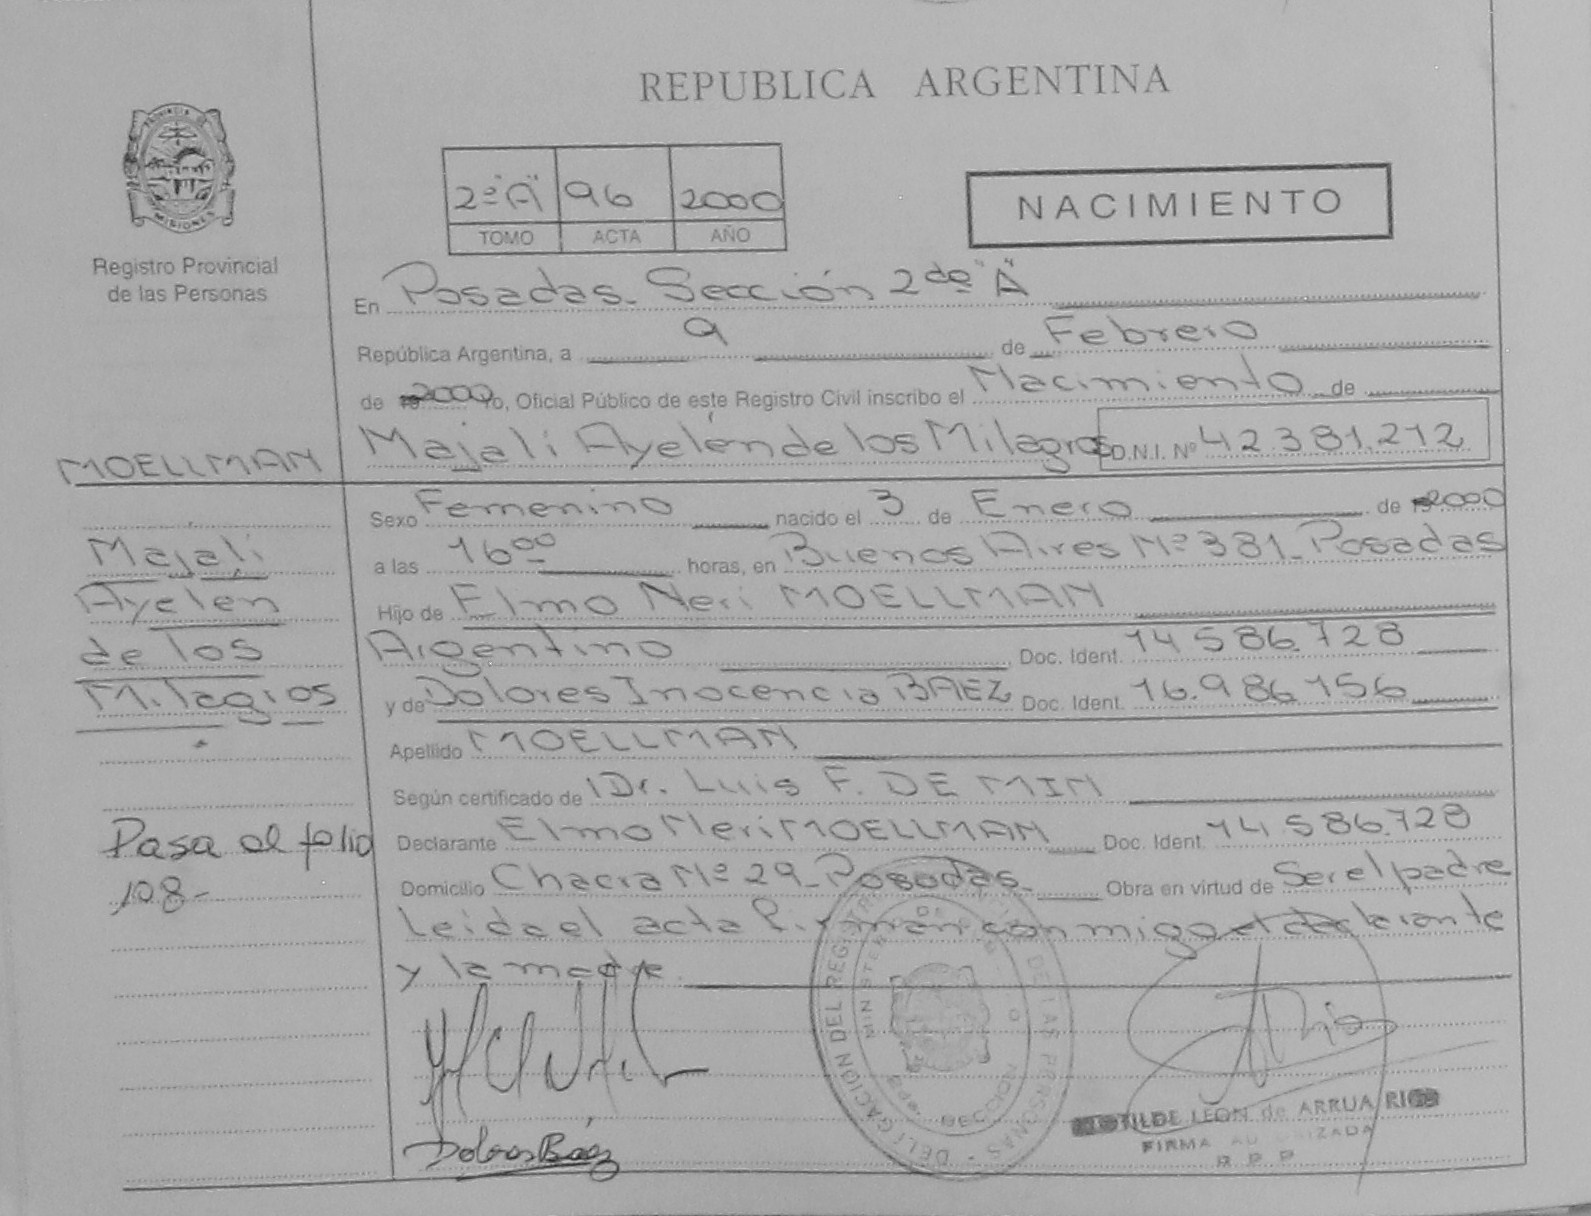 REPUBLICA ARGENTINA
PROVINCIA DE
MISIONES
Registro Provincial
de las Personas
2º"A" 96 2000
TOMO ACTA AÑO
NACIMIENTO
En Posadas. Sección 2da "A"
República Argentina, a 9 de Febrero
de 2000 Yo, Oficial Público de este Registro Civil inscribo el Nacimiento de
MOELLMAN Majali Ayelén de los Milagros D.N.I. Nº 42.381.212
Sexo Femenino nacido el 3 de Enero de 2000
Majali
a las 16ºº horas, en Buenos Aires Nº 381_Posadas
Ayelen
Hijo de Elmo Neri MOELLMAN
de los
Argentino Doc. Ident. 14.586.728
Milagros
y de Dolores Inocencia BAEZ Doc. Ident. 16.986.156
Apellido MOELLMAN
Según certificado de Dr. Luis F. DE MIN
Pasa al folio
108-
Declarante Elmo Neri MOELLMAN Doc. Ident. 14.586.728
Domicilio Chacra Nº 29_Posadas. Obra en virtud de Ser el padre
Leida el acta firman conmigo el declarante
y la madre
DELEGACION DEL REGISTRO DE LAS PERSONAS
SECCION
Dolores Báez
LEON de ARRUA RIOS
FIRMA AUTORIZADA
R P P